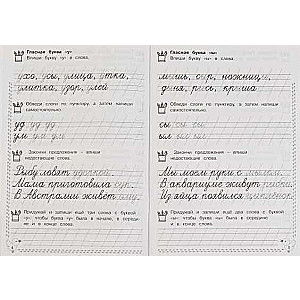 Гласная буква «у»
Впиши букву «у» в слова.
ухо, усы, улица, утка,
улитка, узор, улей
Обведи слоги по пунктиру, а затем напиши
самостоятельно.
уд уд уд
ум ум ум
Закончи предложения – впиши
недостающие слова.
Рыбу ловят удочкой.
Мама приготовила суп.
В Австралии живёт эму.
Придумай и запиши ещё три слова с буквой
«у», чтобы буква «у» была в начале, в середи-
не и в конце слова.
Гласная буква «ы»
Впиши букву «ы» в слова.
мышь, сыр, ножницы,
дыня, рысь, крыша
Обведи слоги по пунктиру, а затем напиши
самостоятельно.
сы сы сы
ыл ыл ыл
Закончи предложения – впиши
недостающие слова.
Мы моем руки с мылом.
В аквариуме живут рыбки.
Из яйца появился цыплёнок.
Придумай и запиши ещё два слова с буквой
«ы», чтобы буква «ы» была в середине
и в конце слова.